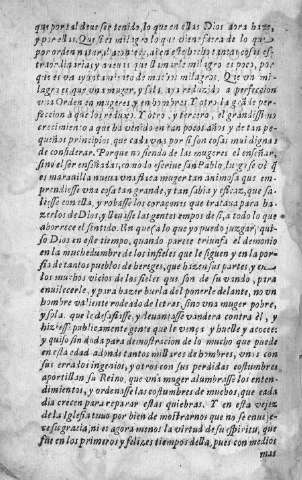 que por tal deue ser tenido, lo que en ellas Dios aora haze,
y por ellas. Que si es milagro lo que viene fuera de lo que
por orden natural acontece, ay en este hecho tantas cosas ex-
traordinarias y nueuas, que llamarle milagro es poco, por
que es vn ayuntamiento de muchos milagros. Que vn mi-
lagro es, que vna muger, y sola, aya reduzido a perfeccion
vna Orden en mugeres, y en hombres. Y otro la grande per-
feccion a que los reduxo. Y otro, y tercero, el grandissimo
crecimiento a que ha venido en tan pocos años, y de tan pe-
queños principios, que cada vna por si son cosas muy dignas
de considerar. Porque no siendo de las mugeres el enseñar,
sino el ser enseñadas, como lo escriue san Pablo, luego se vè q̃
es marauilla nueua vna flaca muger tan animosa que em-
prendiesse vna cosa tan grande, y tan sabia y eficaz, que sa-
liesse con ella, y robasse los coraçones que trataua para ha-
zerlos de Dios, y lleuasse las gentes empos de si, a todo lo que
aborrece el sentido. En que (a lo que yo puedo juzgar) qui-
so Dios en este tiempo, quando parece triunfa el demonio
en la muchedumbre de los infieles que le siguen, y en la por-
fia de tantos pueblos de hereges, que hazen sus partes, y en
los muchos vicios de los fieles que son de su vando, para
enuilecerle, y para hazer burla del ponerle delante, no vn
hombre valiente rodeado de letras, sino vna muger pobre,
y sola, que le desafiasse, y leuantasse vandera contra èl, y
hiziesse publicamente gente que le vença, y huelle, y acocee;
y quiso sin duda para demostracion de lo mucho que puede
en esta edad adonde tantos millares de hombres, vnos con
sus errados ingenios, y otros con sus perdidas costumbres
aportillan su Reino, que vna muger alumbrasse los enten-
dimientos, y ordenasse las costumbres de muchos, que cada
dia crecen para reparar estas quiebras. Y en esta vejez
de la Iglesia tuuo por bien de mostrarnos que no se enueje-
ce su gracia, ni es agora menos la virtud de su espiritu, que
fue en los primeros y felizes tiempos della, pues con medios
mas